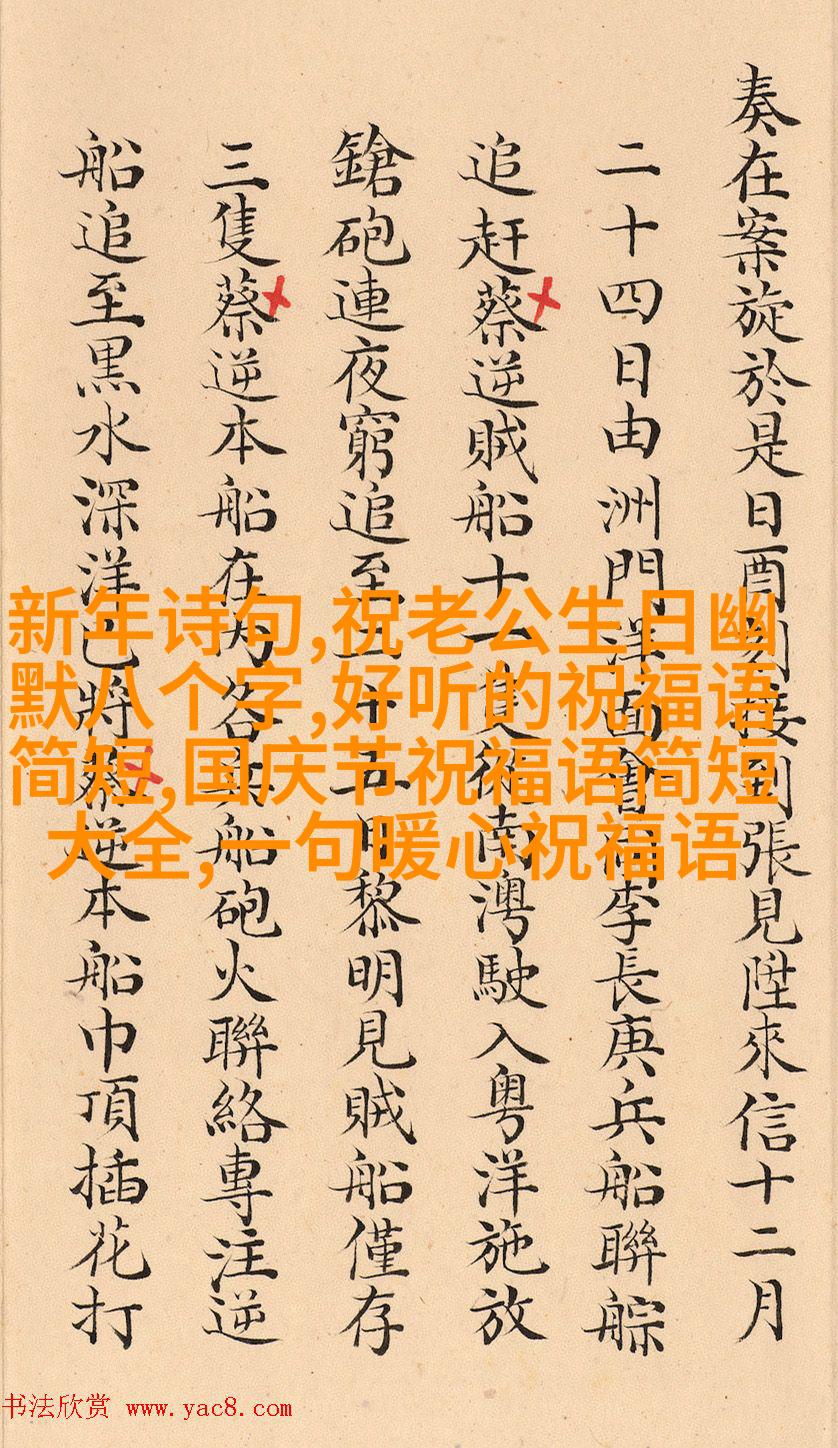 奏在案旋於是日酉刻接到張見陞來信十二月
二十四日由洲門洋面會李長庚兵船聯䑸
追赶蔡逆賊船十一隻從南澳駛入粵洋施放
鎗砲連夜窮追至二十五日黎明見賊船僅存
三隻蔡逆本船在內各兵船砲火聯絡專注逆
船追至黒水深洋已將蔡逆本船巾頂插花打
新年诗句,祝老公生日幽
默八个字,好听的祝福语
简短,国庆节祝福语简短
大全,一句暖心祝福语
书法欣赏 www.yac8.com